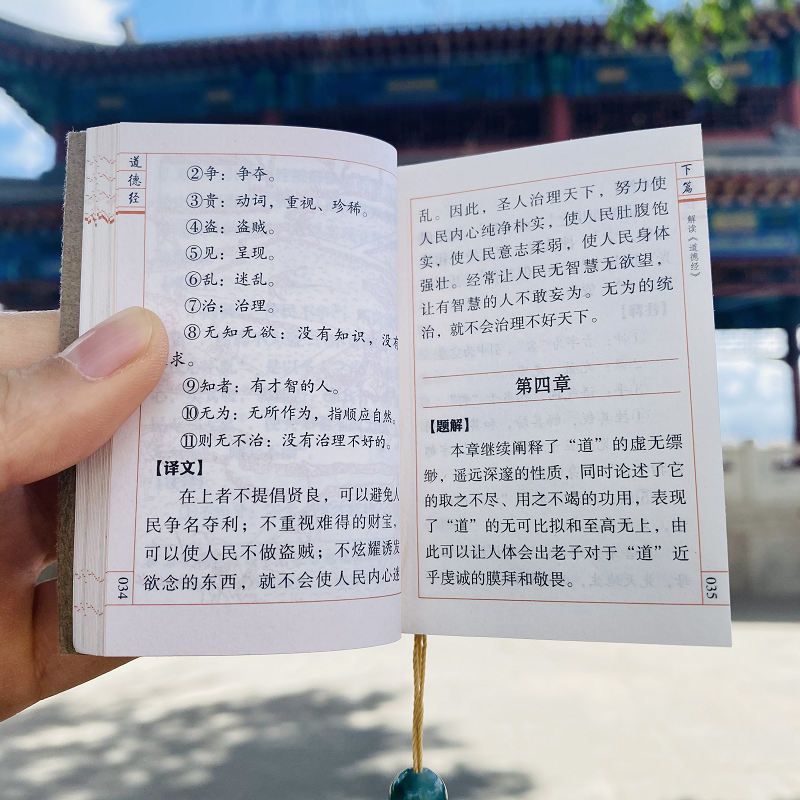 道德经
②争：争夺。
③贵：动词，重视、珍稀。
④盗：盗贼。
⑤见：呈现。
⑥乱：迷乱。
⑦治：治理。
⑧无知无欲：没有知识，没有
求。
⑨知者：有才智的人。
⑩无为：无所作为，指顺应自然。
⑪则无不治：没有治理不好的。
【译文】
在上者不提倡贤良，可以避免人
民争名夺利；不重视难得的财宝，
可以使人民不做盗贼；不炫耀诱发
欲念的东西，就不会使人民内心迷
034
下篇
解读《道德经》
乱。因此，圣人治理天下，努力使
人民内心纯净朴实，使人民肚腹饱
实，使人民意志柔弱，使人民身体
强壮。经常让人民无智慧无欲望，
让有智慧的人不敢妄为。无为的统
治，就不会治理不好天下。
第四章
【题解】
本章继续阐释了“道”的虚无缥
缈，遥远深邃的性质，同时论述了它
的取之不尽、用之不竭的功用，表现
了“道”的无可比拟和至高无上，由
此可以让人体会出老子对于“道”近
乎虔诚的膜拜和敬畏。
035